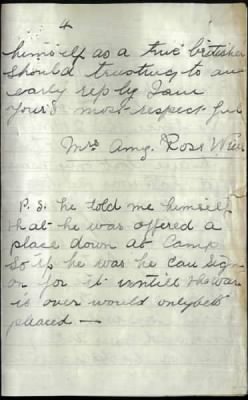 4
himself as a true britisher
should trusting to an
early reply I am
Your's most respect fuly
Mrs Amy. Ross
P.S. he told me himself
that he was offered a
place down at Camp
So if he was he can sign
on for it untill the war
is over would only be to
pleased —